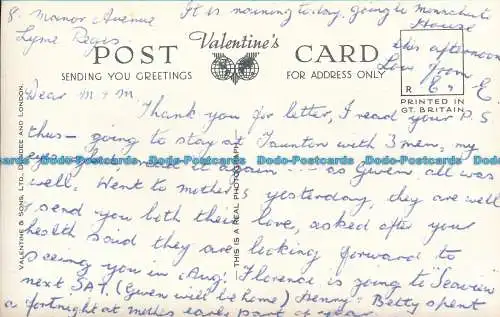 8. Manor Avenue
Lyme Regis
It is raining today. going to
House
this afternoon
Love from
E
POST
Valentine's
CARD
SENDING YOU GREETINGS
FOR ADDRESS ONLY
R
PRINTED IN
GT. BRITAIN
Dear M & M.
Thank you for letter, I read your P.S
thus - going to stay at Taunton with 3 men, my
eyes read it again as Gwen. all was
well. Went to mother's yesterday, they are well
& send you both their love, asked after your
health said they are looking forward to
seeing you in Aug. Florence is going to Seaview
next SAT, (Gwen will be home) Benny & Betty spent
a fortnight at mothers early part of year
VALENTINE & SONS, LTD., DUNDEE AND LONDON.
THIS IS A REAL PHOTOGRAPH
Dodo-Postcards Dodo-Postcards Dodo-Postcards Dodo-Postcards Dodo-Postcards